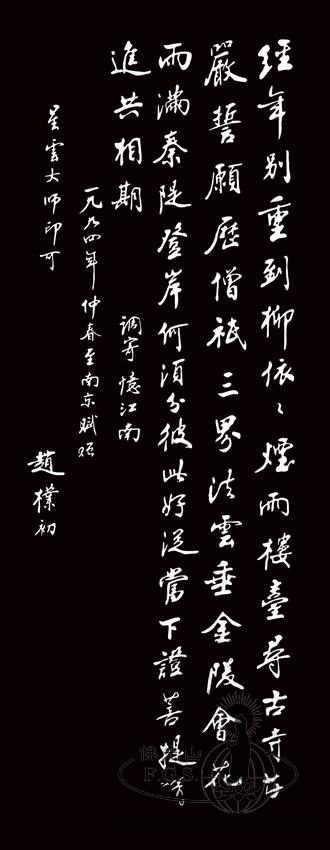 經年別重到柳依〻煙雨樓臺尋古寺莊
嚴誓願歷僧祇三界法雲垂金陵會花
雨滿秦隄登岸何須分彼此好從當下證菩提精
進共相期
調寄憶江南
一九九四年仲春至南京賦贈
星雲大師印可
趙樸初
佛光山
F.G.S.